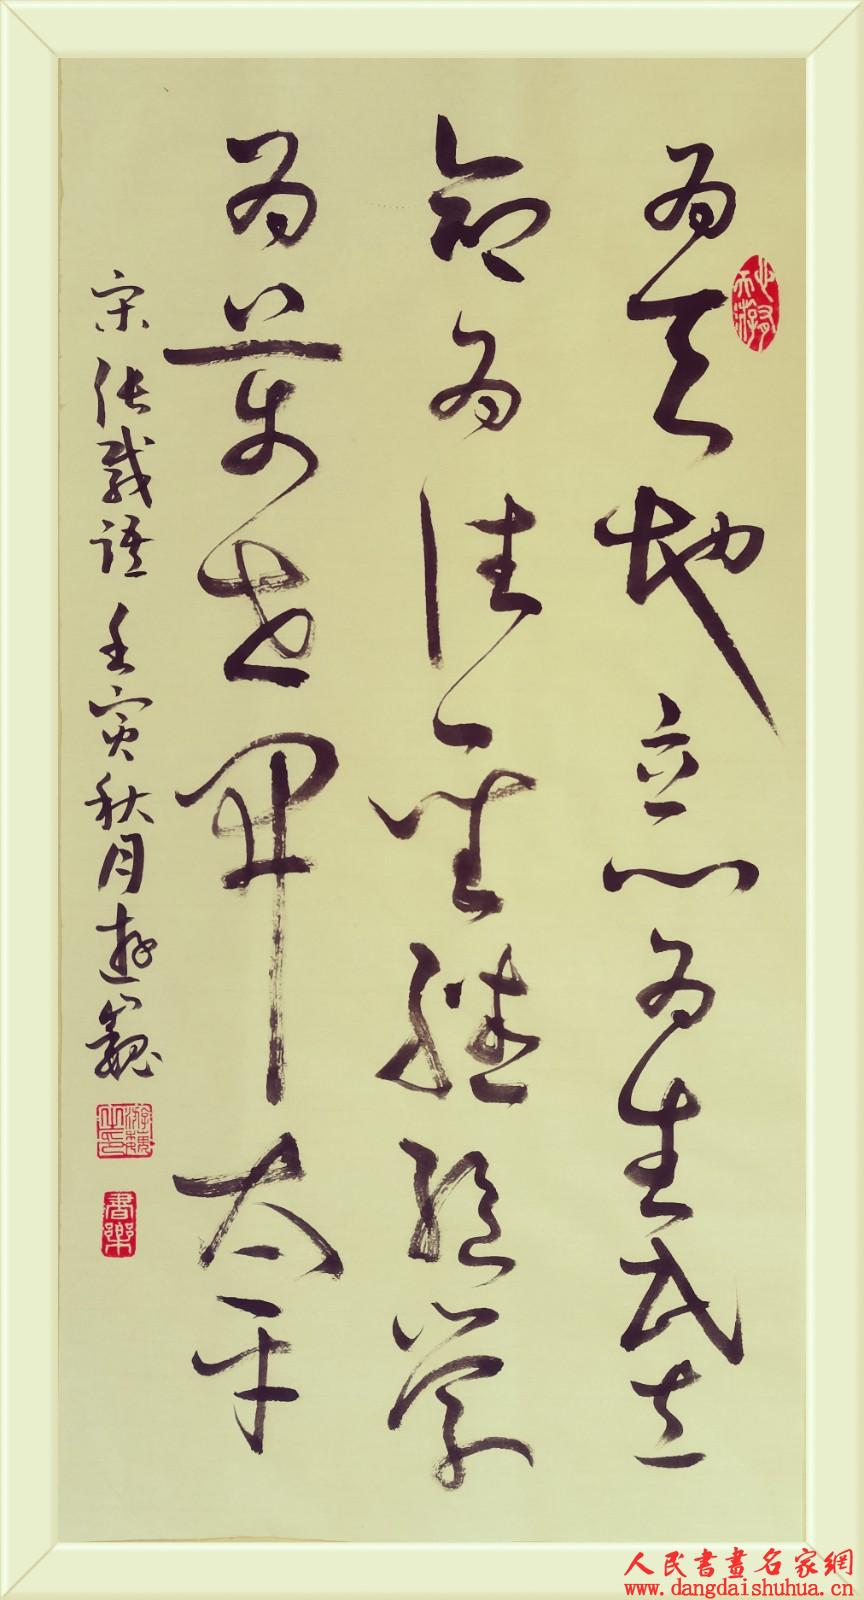 為天地立心為生民立
命為往聖繼絕學
為萬世開太平
宋張載語壬寅秋月遊巍
游巍之印
書樂
人民書畫名家網
www.dangdaishuhua.cn